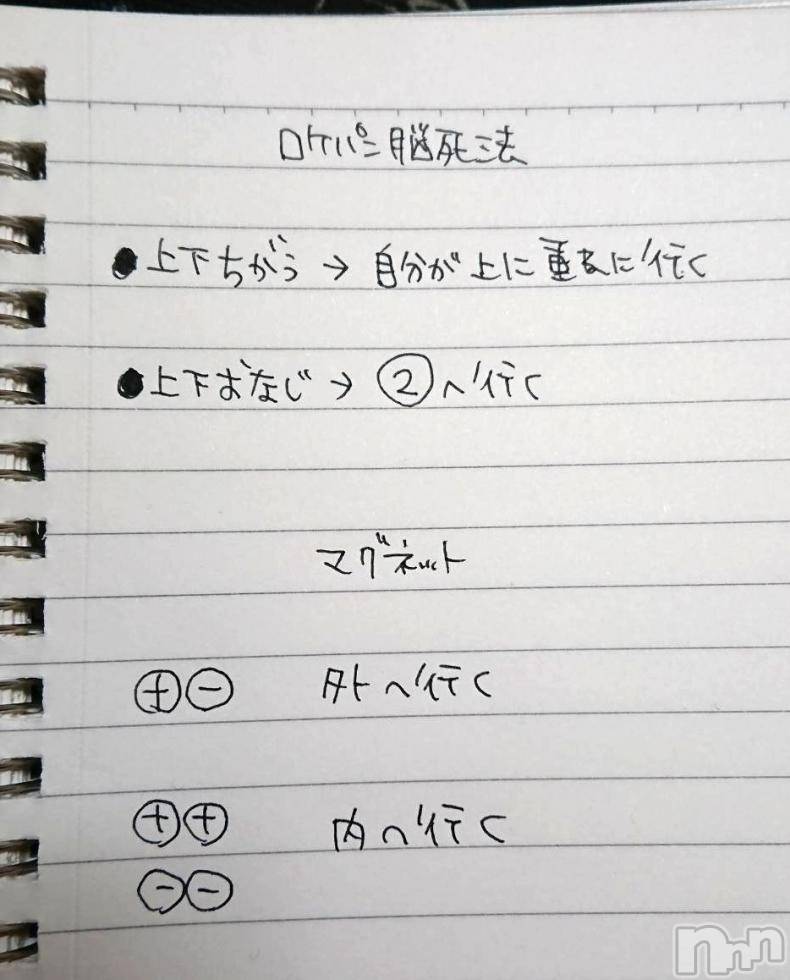 ロケパニ脳死法
●上下ちがう→自分が上に重ねに行く
●上下おなじ→②へ行く
マグネット
⊕⊖ 外へ行く
⊕⊕ 内へ行く
⊖⊖
nnn